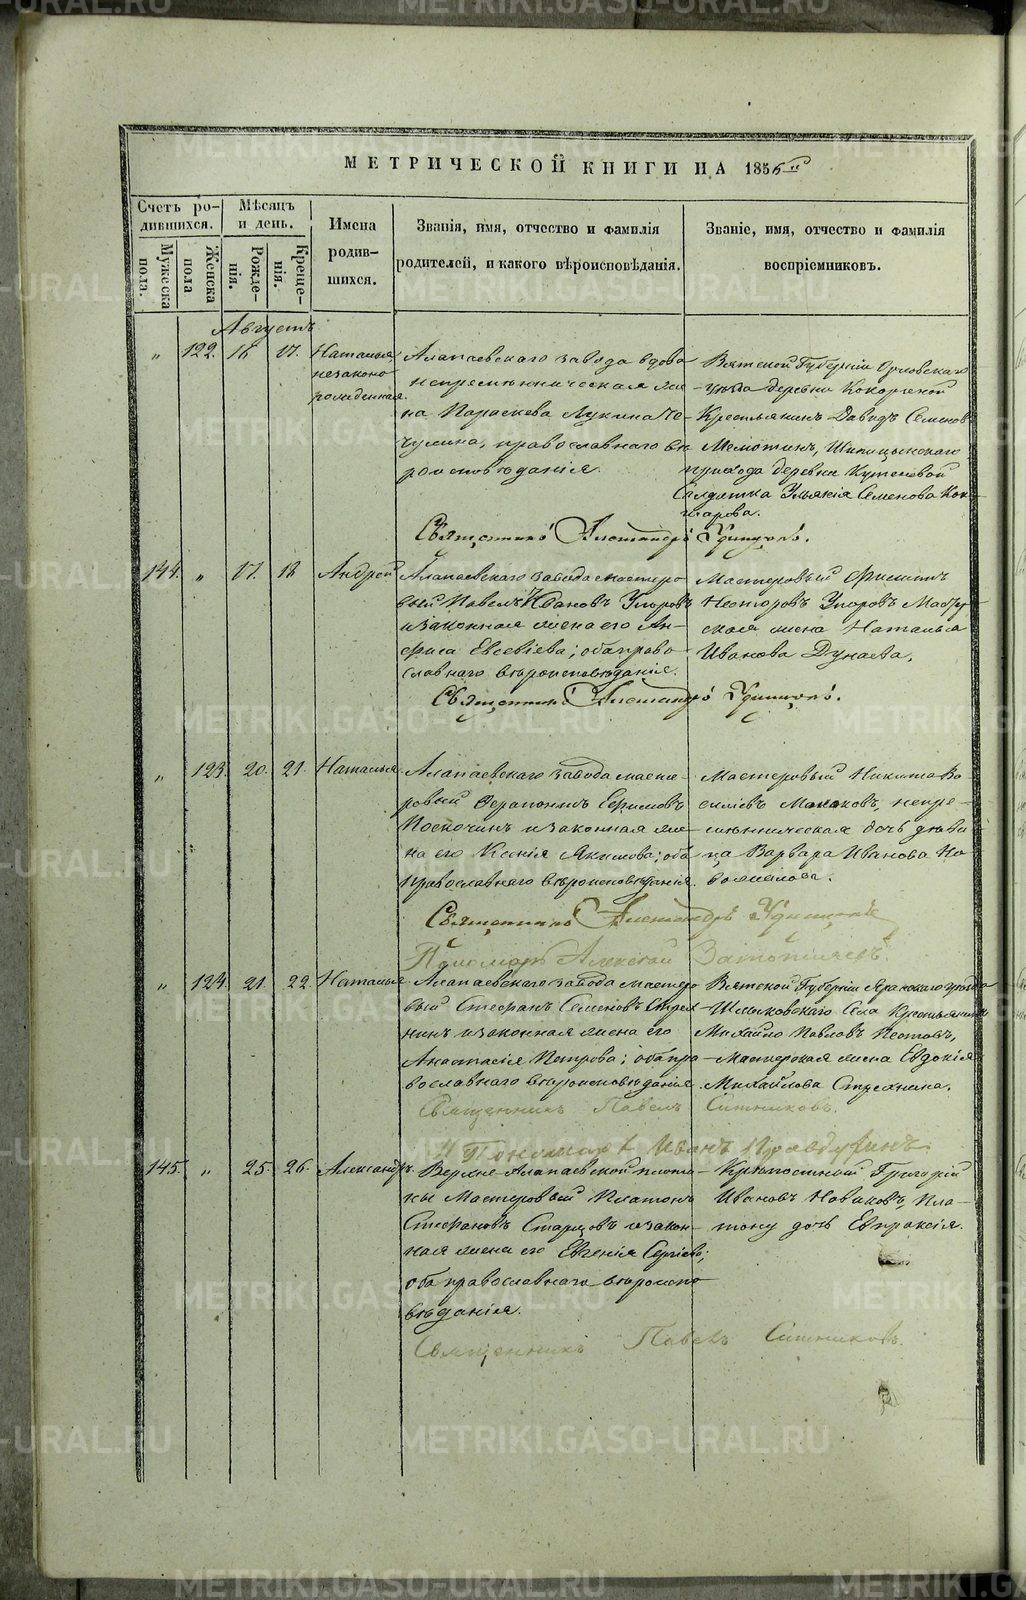 МЕТРИЧЕСКОЙ КНИГИ НА 1856
Счетъ ро-
дившихся.
Мужеска
пола.
Женска
пола
Мѣсяцъ
и день.
Рожде-
нія.
Креще-
нія.
Имена
родив-
шихся.
Званія, имя, отчество и фамилія
родителей, и какого вѣроисповѣданія.
Званіе, имя, отчество и фамилія
воспріемниковъ.
Августъ
„ 122. 17. Наталья
незаконо
рожденная.
Алапаевскаго завода вдова
непремѣнническая же
на Параскева Лукина
православнаго вѣ
роисповѣданія.
Вятской Губерніи Орловскаго
уѣзда деревни
Крестьянинъ Давидъ Семеновъ
прихода деревни
Солдатка Семенова
шарова.
Священникъ Александръ Удинцовъ.
144. „ 17. 18 Андрей
Алапаевскаго завода мастеро
вый Павелъ Ивановъ Упоровъ
и законная жена его Ан-
фиса Евсевіева; оба право-
славнаго вѣроисповѣданія.
Мастеровый
Несторовъ Упоровъ
ская жена Наталья
Иванова Дунаева.
Священникъ Александръ Удинцовъ.
„ 123. 20. 21. Наталья.
Алапаевскаго завода масте-
ровый Ферапонтъ Ефимовъ
Поскочинъ и законная же-
на его Ксенія Акимова; оба
православнаго вѣроисповѣданія.
Мастеровый Никита Ва
силіевъ непре-
мѣнническая дочь дѣви
ца Варвара Иванова
Священникъ Александръ Удинцовъ
Пономарь Алексей
„ 124. 21. 22. Наталья
Алапаевскаго завода мастеро
вый Стефанъ Семеновъ Стрях
нинъ и законная жена его
Анастасія Петрова; оба пра-
вославнаго вѣроисповѣданія.
Вятской Губерніи Яранскаго уѣзда
Села Крестьянинъ
Михайло Павловъ
Мастерская жена Евдокія
Михайлова Стряхнина.
Священникъ Павелъ Ситниковъ.
Пономарь Иванъ Правдухинъ
145. „ 25. 26. Александръ.
Верхне Алапаевской плоти-
ны Мастеровый Платонъ
Стефановъ Старцовъ и закон-
ная жена его Евгенія Сергіева;
оба православнаго вѣроиспо
вѣданія.
Крѣпостной Григорій
Ивановъ Новиковъ, Пла-
тону дочь Евпраксія.
Священникъ Павелъ Ситниковъ.
METRIKI.GASO-URAL.RU